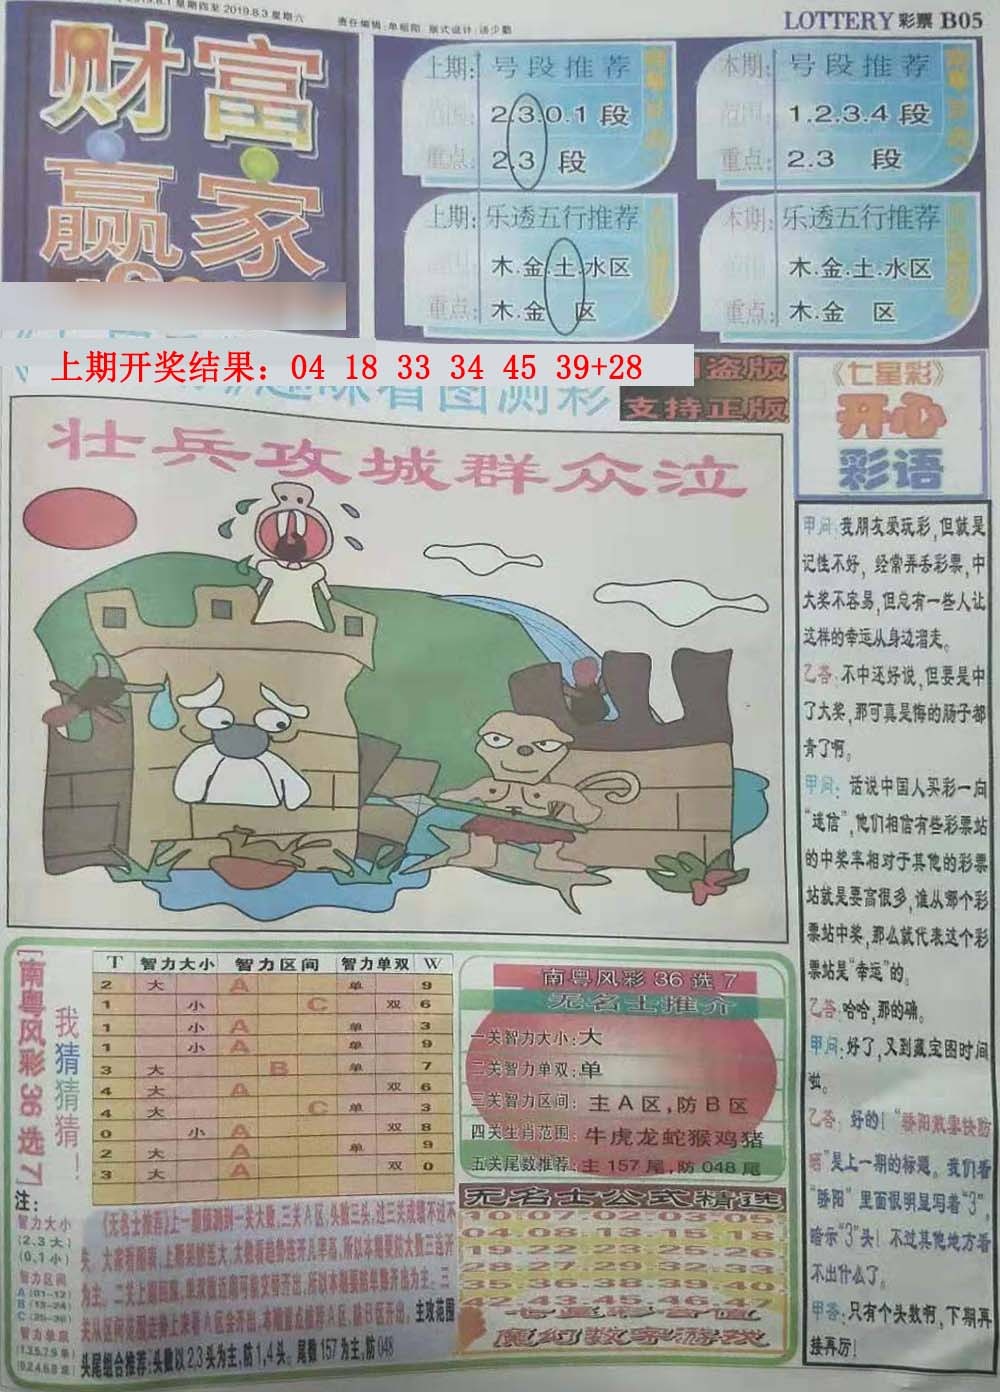 2019.8.1 星期四至 2019.8.3 星期六
责任编辑:单祖阳 版式设计:汤少勤
LOTTERY 彩票 B05
财富
赢家
上期: 号段推荐
范围: 2.3.0.1 段
重点: 2.3 段
本期: 号段推荐
范围: 1.2.3.4 段
重点: 2.3 段
上期: 乐透五行推荐
木.金.土.水区
重点: 木.金 区
本期: 乐透五行推荐
范围: 木.金.土.水区
重点: 木.金 区
上期开奖结果：04 18 33 34 45 39+28
趣味看图测彩
盗版
支持正版
壮兵攻城群众泣
《七星彩》
开心
彩语
甲问:我朋友爱玩彩,但就是
记性不好,经常弄丢彩票,中
大奖不容易,但总有一些人让
这样的幸运从身边溜走。
乙答:不中还好说,但要是中
了大奖,那可真是悔的肠子都
青了啊。
甲问:话说中国人买彩一向
“迷信”,他们相信有些彩票站
的中奖率相对于其他的彩票
站就是要高很多,谁从哪个彩
票站中奖,那么就代表这个彩
票站是“幸运”的。
乙答:哈哈,那的确。
甲问:好了,又到藏宝图时间
啦。
乙答:好的!“骄阳散雾快防
晒”是上一期的标题。我们看
“骄阳”里面很明显写着“3”,
暗示“3”头!不过其他地方看
不出什么了。
甲答:只有个头数啊,下期再
接再厉!
[南粤风彩36选7]
我猜猜猜猜!
T 智力大小 智力区间 智力单双 W
2 大 A 单 9
1 小 C 双 6
1 小 A 单 3
1 小 A 单 9
3 大 B 单 7
4 大 A 双 6
4 大 C 单 3
0 小 A 双 8
2 大 A 单 9
3 大 A 双 0
注:
智力大小
(2.3大)
(0.1小)
智力区间
A (01-12)
B (13-24)
C (25-36)
智力单双
(1.3.5.7.9单)
(0.2.4.6.8双)
《无名士推荐》上一期预测到一关大数,三关A区,头数三头,过三关成绩不过不
失。大家看图表,上期果然连大,大数看趋势连开几率高,所以本期要防大数三连开
为主。二关上期回双,单双最近期可能交替开出,所以本期要防单数开出为主。三
关从区间范围走势上来看A区会开出,本期重点推荐A区,防B区开出。主攻范围
头尾组合推荐:头数以2,3头为主,防1,4头。尾数157为主,防048
南粤风彩36选7
无名士推介
一关智力大小:大
二关智力单双:单
三关智力区间: 主A区,防B区
四关生肖范围: 牛虎龙蛇猴鸡猪
五关尾数推荐:主157尾,防048尾
无名士公式精选
10.07.02.03.05
04.08.09.15.18
19.22.23.25.26
28.27.29.32.31
35.36.38.39.30
42.43.45.46.47
七星彩奇值
魔幻数字游戏